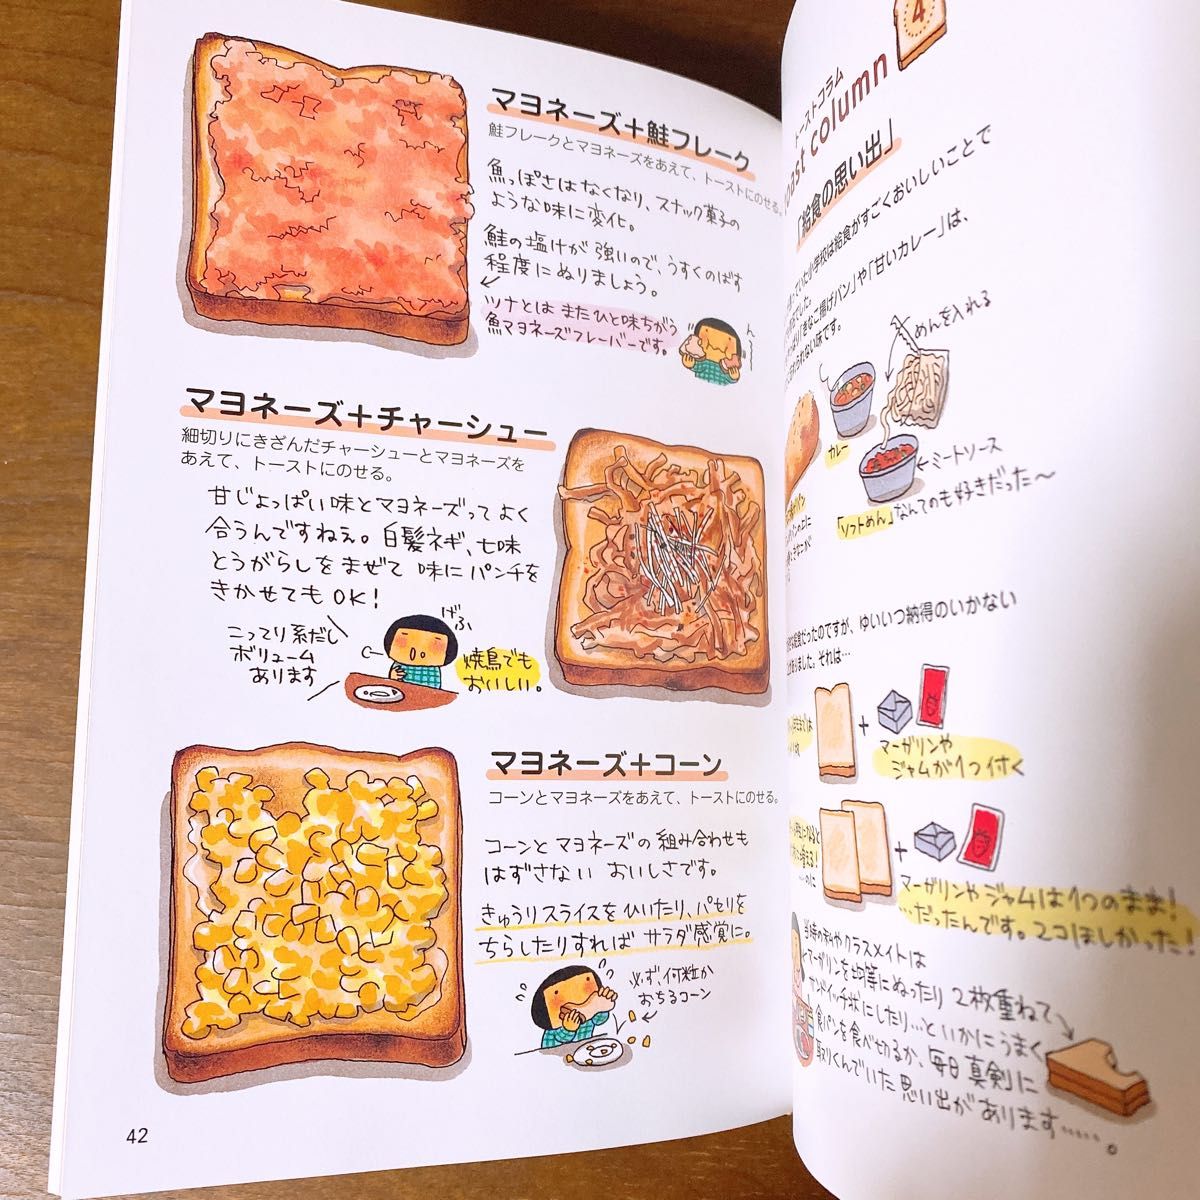 マヨネーズ+鮭フレーク
鮭フレークとマヨネーズをあえて、トーストにのせる。
魚っぽさはなくなり、スナック菓子の
ような味に変化。
鮭の塩けが強いので、うすくのばす
程度にぬりましょう。
ツナとは またひと味ちがう
魚マヨネーズフレーバーです。
マヨネーズ+チャーシュー
細切りにきざんだチャーシューとマヨネーズを
あえて、トーストにのせる。
甘じょっぱい味とマヨネーズってよく
合うんですねぇ。白髪ネギ、七味
とうがらしをまぜて 味にパンチを
きかせてもOK!
こってり系だし
ボリューム
あります
げふ
焼鳥でも
おいしい。
マヨネーズ+コーン
コーンとマヨネーズをあえて、トーストにのせる。
コーンとマヨネーズの組み合わせも
はずさない おいしさです。
きゅうりスライスをひいたり、パセリを
ちらしたりすれば サラダ感覚に。
必ず、何粒か
おちるコーン
42
4
トーストコラム
oast column
「給食の思い出」
小学校は給食がすごくおいしいことで
きなこ揚げパン」や「甘いカレー」は、
られない味です。
めんを入れる
カレー
ミートソース
「ソフトめん」なんてのも好きだった〜
給食だったのですが、ゆいいつ納得のいかない
ありました。それは…
+
マーガリンや
ジャムが1つ付く
+
マーガリンや ジャムは1つのまま!
…だったんです。2コほしかった!
当時の私やクラスメイトは
マーガリンを均等にぬったり 2枚重ねて
サンドイッチ状にしたり…といかにうまく
食パンを食べ切るか、「毎日 真剣」に
取りくんでいた 思い出があります……。